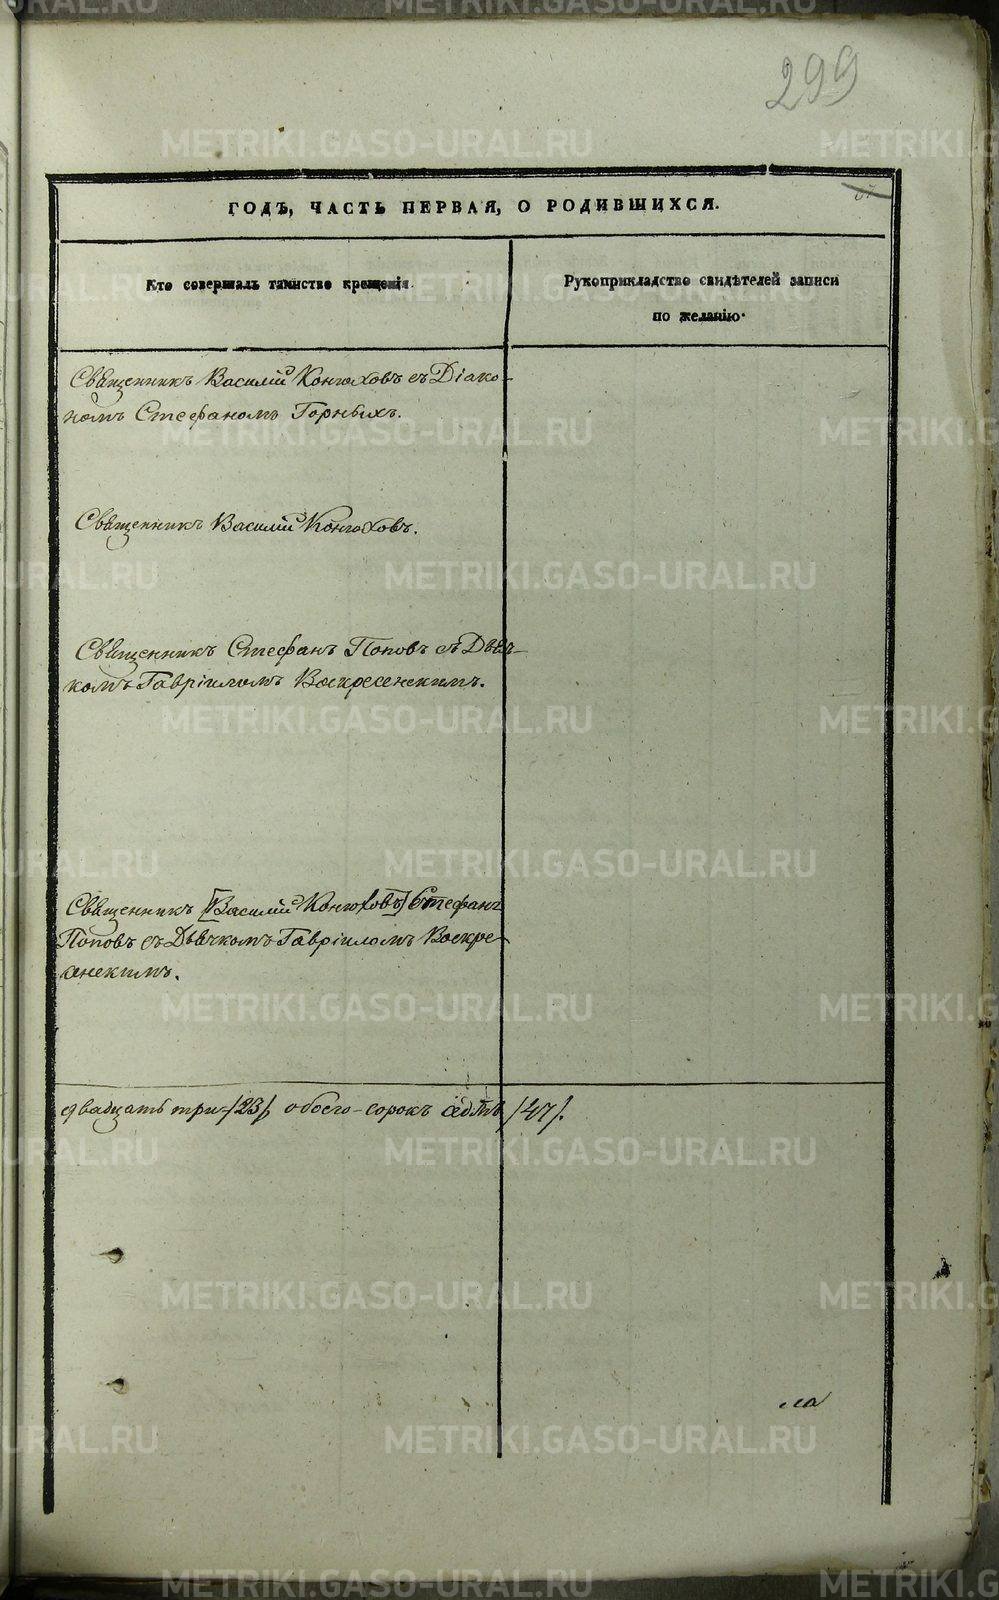 299
ГОДЪ, ЧАСТЬ ПЕРВАЯ, О РОДИВШИХСЯ.
Кто совершалъ таинство крещенія.
Рукоприкладство свидѣтелей записи
по желанію.
Священникъ Василій Конюховъ съ Діако-
номъ Стефаномъ Горныхъ.
Священникъ Василій Конюховъ.
Священникъ Стефанъ Поповъ съ Дьяч-
комъ Гавріиломъ Воскресенскимъ.
Священникъ [Василій Конюховъ] Стефанъ
Поповъ съ Дьячкомъ Гавріиломъ Воскре-
сенскимъ.
двадцать три /23/ обоего - сорокъ седмь /47/.
METRIKI.GASO-URAL.RU